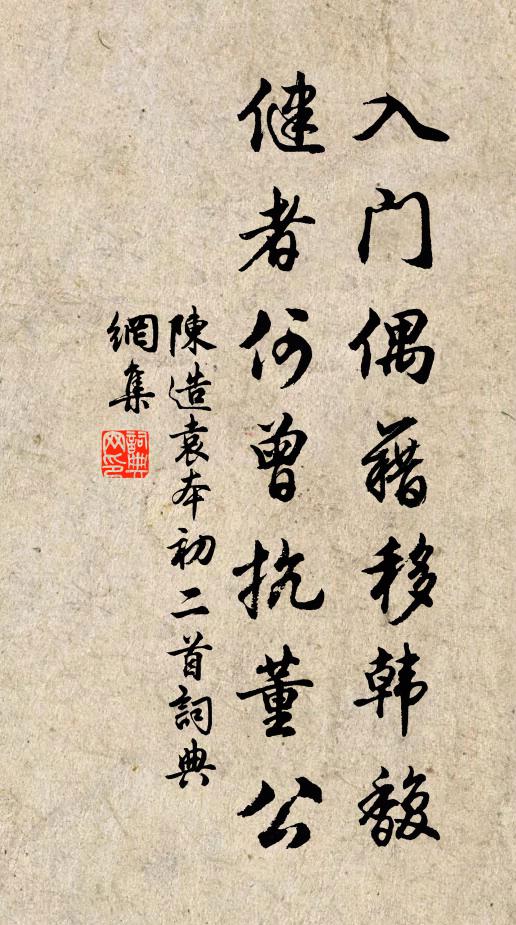 入门偶藉移韩馥
健者何曾抗董公
陳造袁本初二首詞典
網集
詞典网印